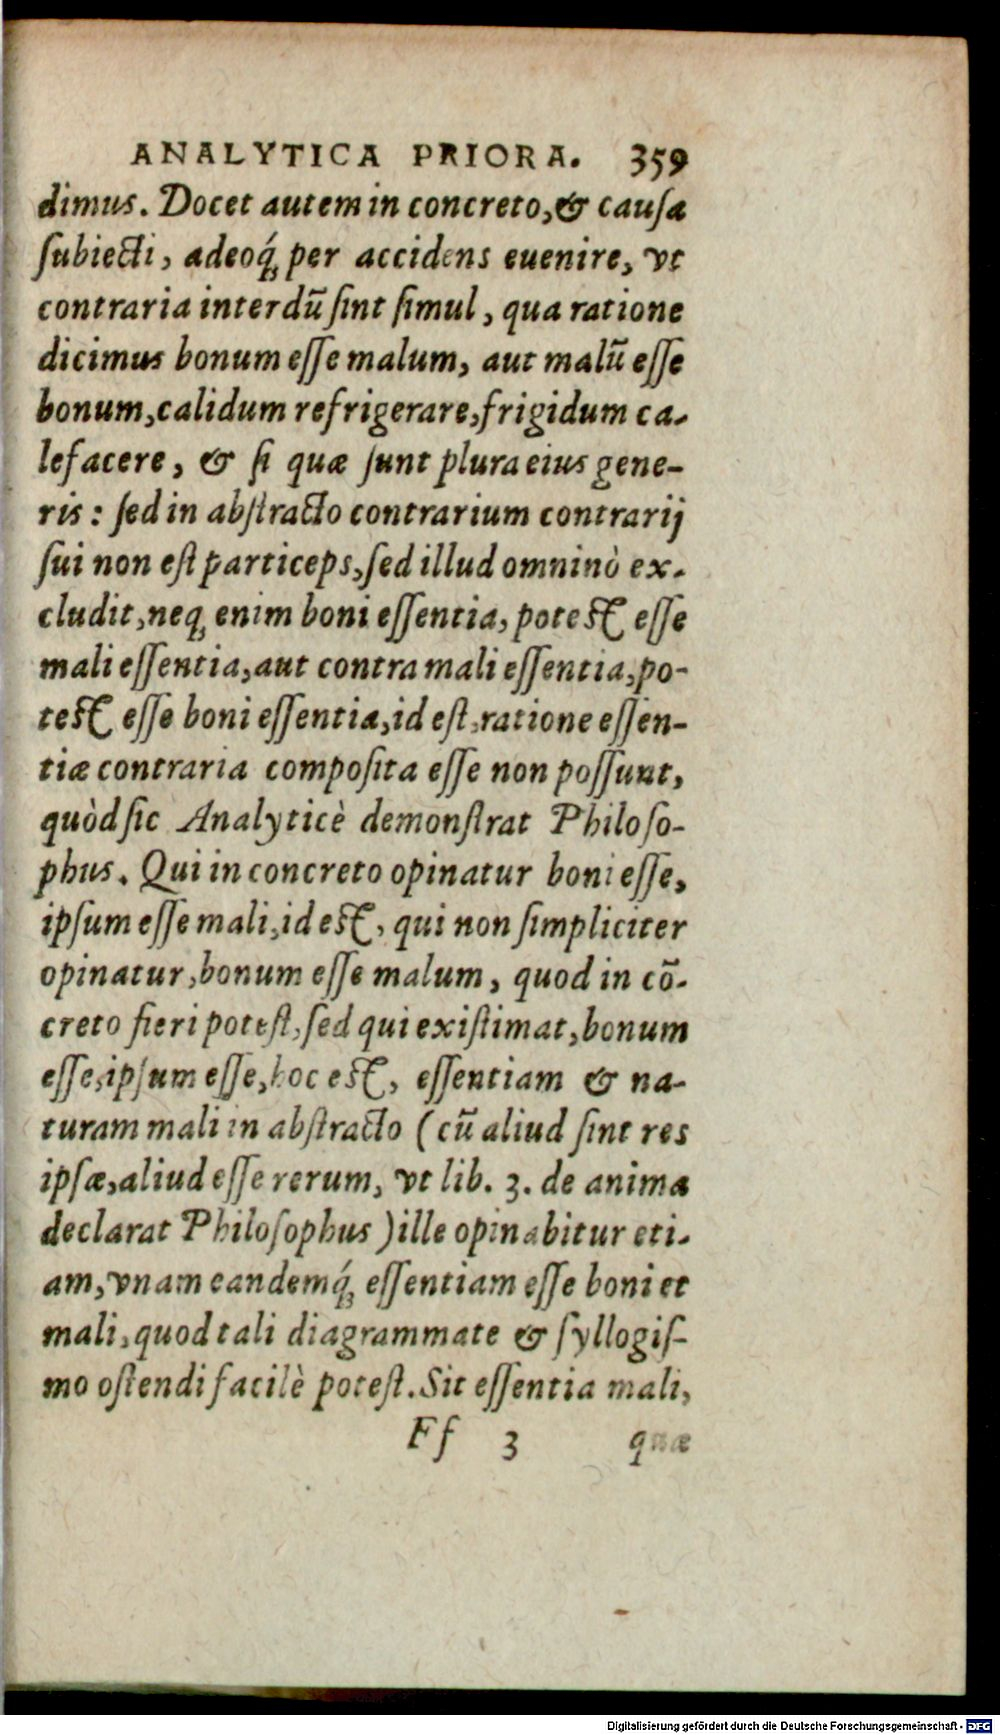 ANALYTICA PRIORA. 359
dimus. Docet autem in concreto,& causa
ſubiecti, adeoq́; per accidens euenire, vt
contraria interdū ſint ſimul, qua ratione
dicimus bonum eſſe malum, aut malū eſſe
bonum,calidum refrigerare,frigidum ca-
lefacere, & ſi quæ ſunt plura eius gene-
ris: ſed in abſtracto contrarium contrarij
ſui non eſt particeps,ſed illud omninò ex-
cludit,neq; enim boni eſſentia, poteſt eſſe
mali eſſentia,aut contra mali eſſentia,po-
teſt eſſe boni eſſentia,id eſt,ratione eſſen-
tiæ contraria compoſita eſſe non poſſunt,
quòd ſic Analyticè demonſtrat Philoſo-
phus. Qui in concreto opinatur boni eſſe,
ipſum eſſe mali,id eſt, qui non ſimpliciter
opinatur,bonum eſſe malum, quod in cō-
creto fieri poteſt,ſed qui exiſtimat,bonum
eſſe,ipſum eſſe,hoc eſt, eſſentiam & na-
turam mali in abſtracto (cū aliud ſint res
ipſæ,aliud eſſe rerum, vt lib. 3. de anima
declarat Philoſophus )ille opinabitur eti-
am,vnam eandemq́; eſſentiam eſſe boni et
mali,quod tali diagrammate & ſyllogiſ-
mo oſtendi facilè poteſt.Sit eſſentia mali,
Ff 3 quæ
Digitalisierung gefördert durch die Deutsche Forschungsgemeinschaft - DFG